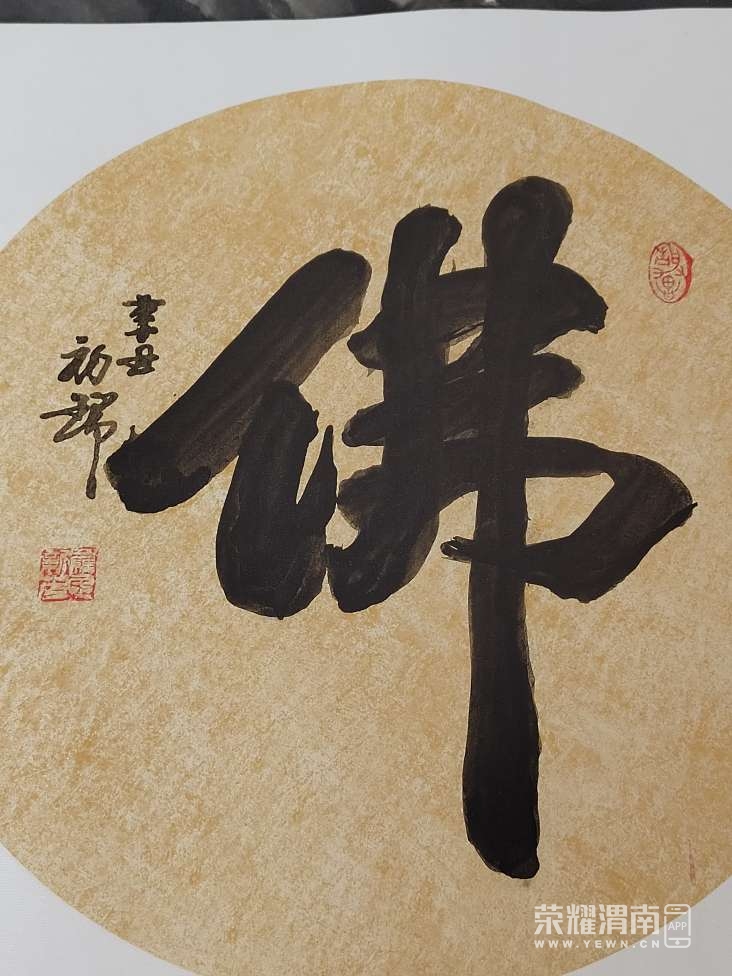 佛
辛丑
初瑞
荣耀渭南 APP
WWW.YEWN.CN